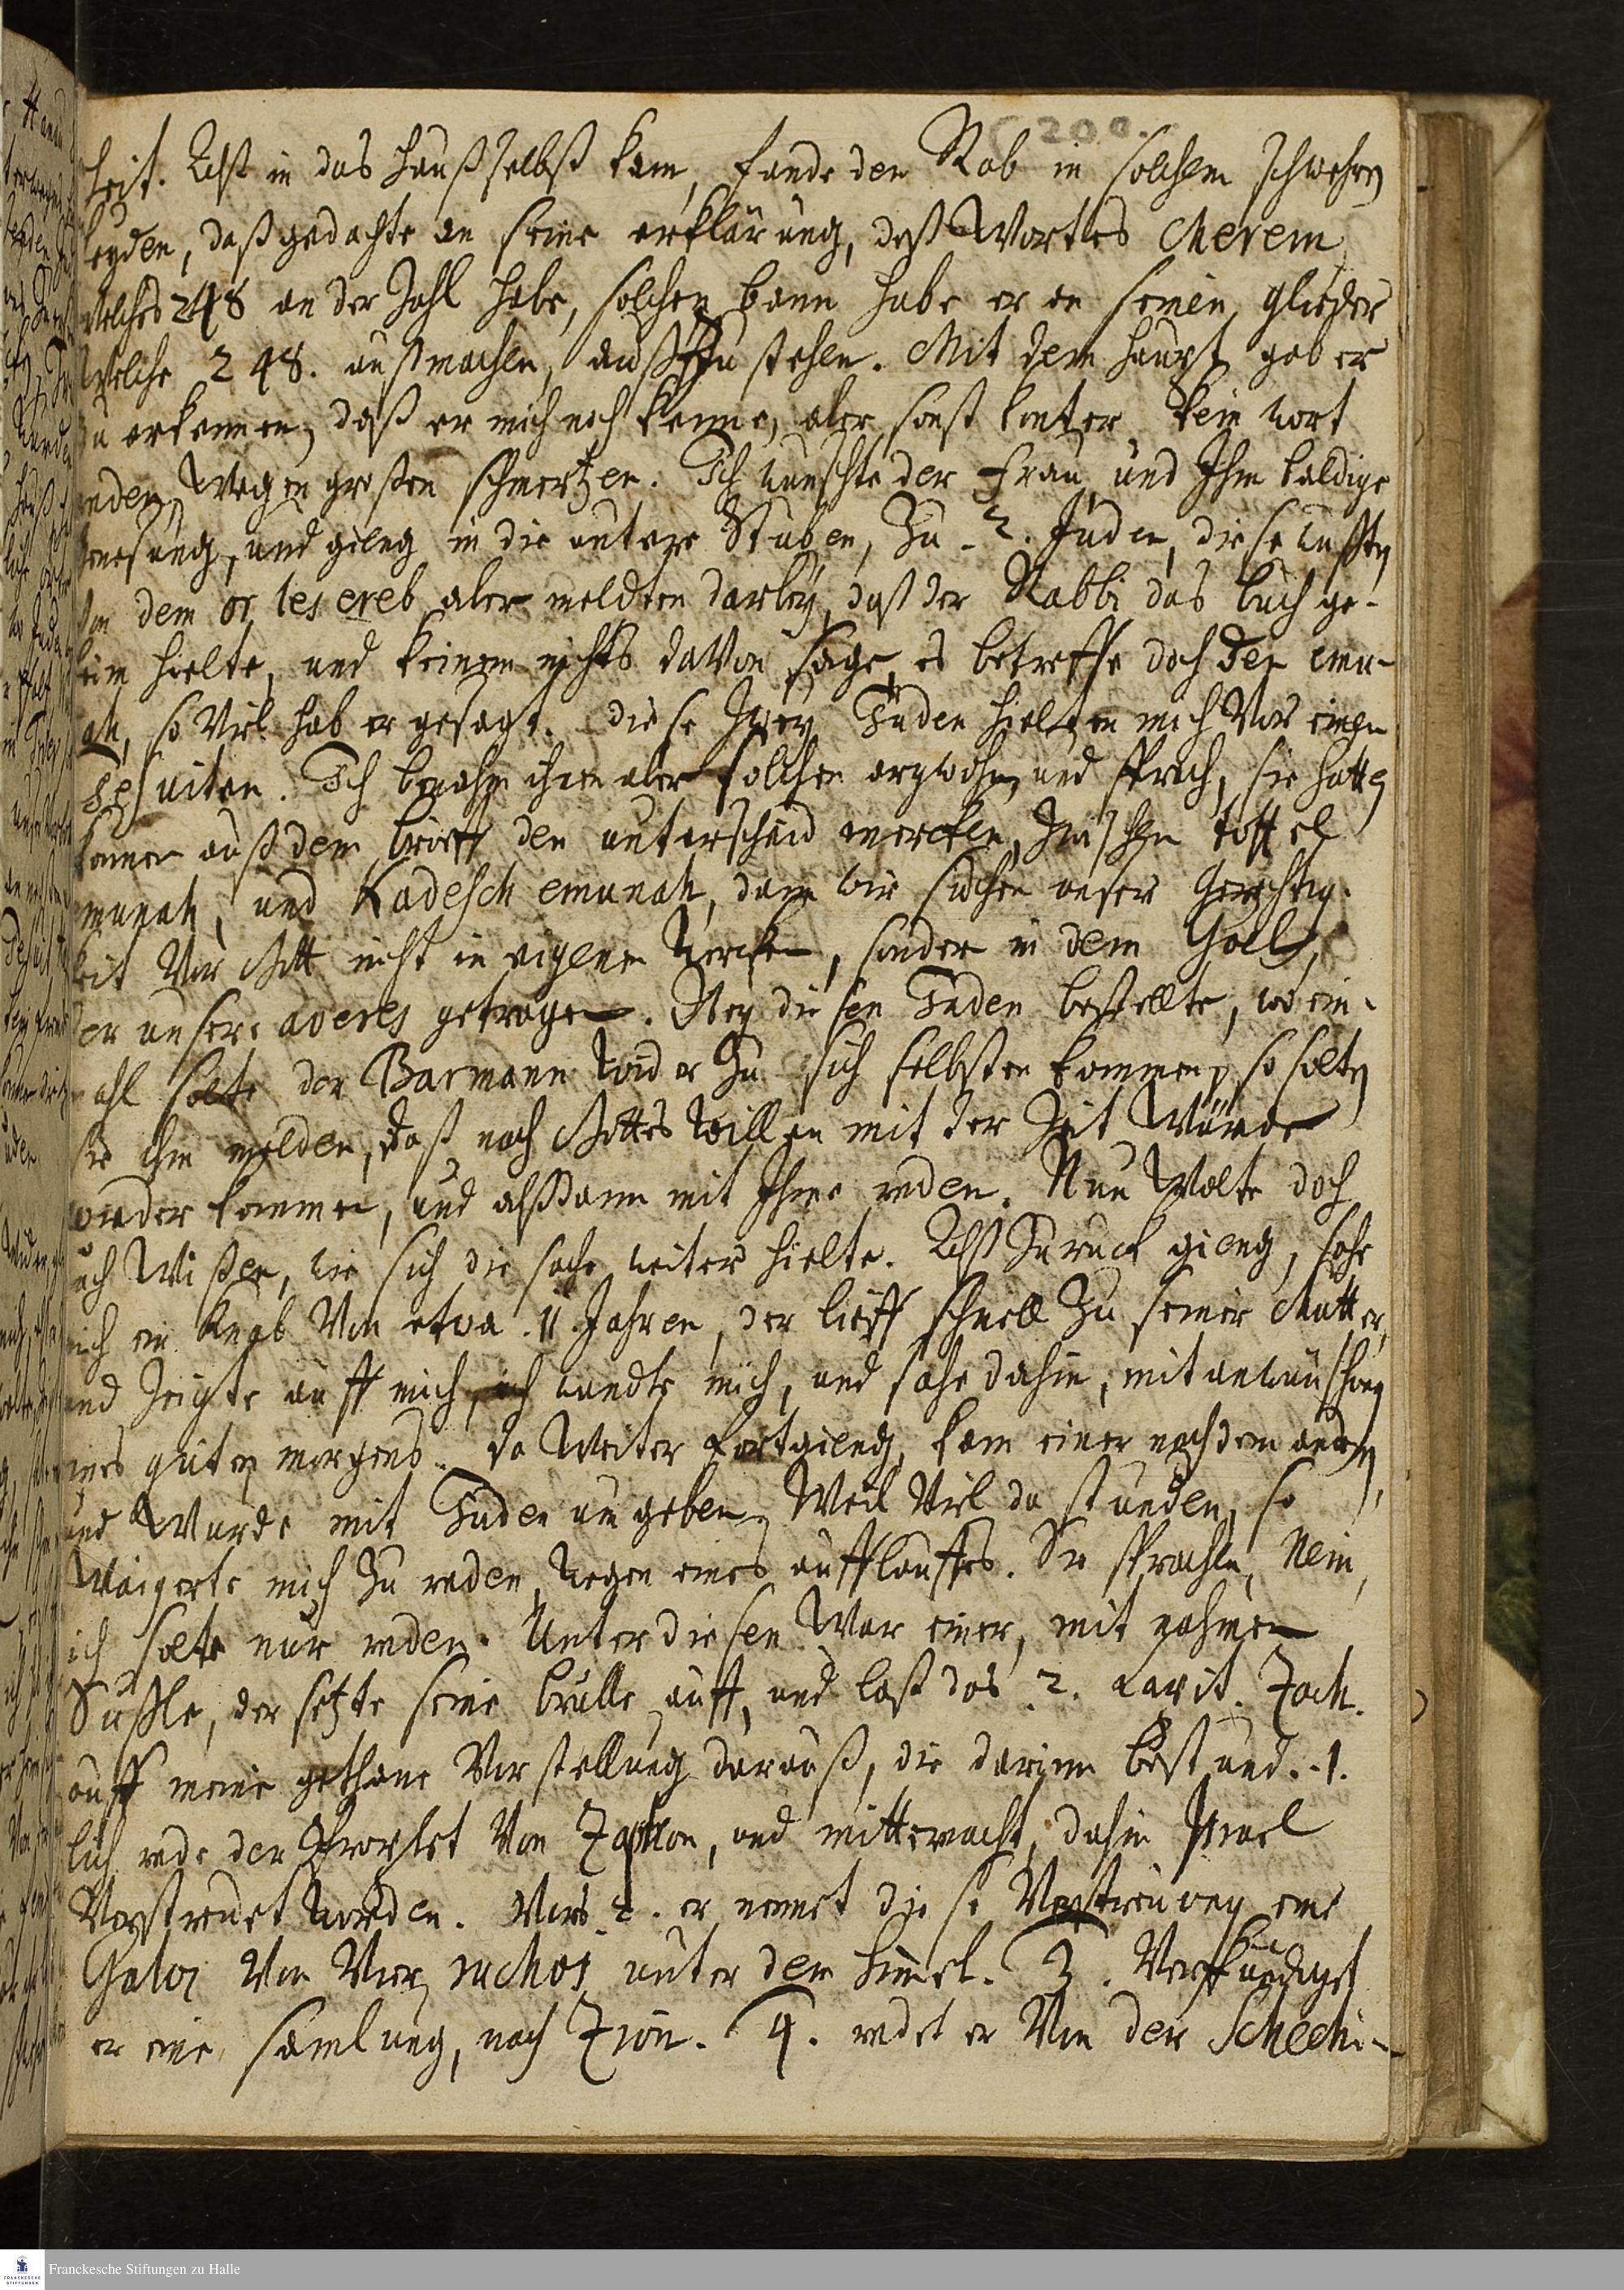 200.
heit. Alß in das hauß selbst kam, fande den Rab in solchem schwehren
leyden, daß gedachte an seine erklärung, deß Wortes Cherem
Welches 248 an der Zahl habe, solchen bann habe er an seinen glieder
Welche 248. außmachen, außzustehen. Mit dem haupt gab er
zu erkennen, daß er mich noch kenne, aber sonst konte er kein wort
reden, Wegen großen schmertzen. Ich wunschte der Frau und Ihm baldige
genesung, und gieng in die untere Stuben, Zu 2. Juden, diese wusten
Von dem or les ereb aber meldten darbey, daß der Rabbi das buch ge-
heim hielte, und keinem nichts davon sage, es betreffe doch den emu-
ah, so Viel hab er gesagt. diese Zwey Juden hielten mich Vor einen
Jesuiten. Ich benahm ihnen aber solchen argwohn, und sprach, sie hatten
können auß dem brieff den unterscheid mercken, Zwischen toffel
emunah, und Kadesch emunah, dann wir suchen unsere Gerechtig-
keit Vor Gott nicht in eigenen Wercken, sonder in dem Goel,
der unsere averes getragen. Bey diesen Juden bestellte, wo ein-
mahl solte der Barmann wider Zu sich selbsten kommen, so solten
Sie ihm melden, daß nach Gottes Willen mit der Zeit Würde
wieder kommen, und alßdann mit Ihme reden. Nun Wolte doch
auch Wißen, wie sich die sache weiter hielte. Alß Zuruck gieng, sahe
mich ein Knab Von etwa 11. Jahren, der lieff schnell Zu seiner Mutter,
und Zeigte auff mich, ich wandte mich, und sahe dahin, mit anwünschung
eines guten morgens. Da Weiter fortgieng, kam einer nach dem andern,
und Wurde mit Juden umgeben. Weil Viel da stunden, so
Waigerte mich Zu reden, wegen eines aufflauffes. Sie sprachen, Nein,
ich solte nur reden. Unter diesen War einer, mit nahmen
Süßle, der setzte seine brülle auff, und laß das 2. Capit. Zach.
auff meine gethane Vorstellung darauß, die darinn bestund. 1.
lich rede der Prophet Von Zaphon, und mitternacht, dahin Israel
Verstreuet worden. Vers 2. er nennet diese Verstreuung eine
Galus Von Vier ruchos unter dem himel. 3. Verkündiget
er eine samlung, nach Zion. 4. redet er Von der Schechi-
Franckesche Stiftungen zu Halle